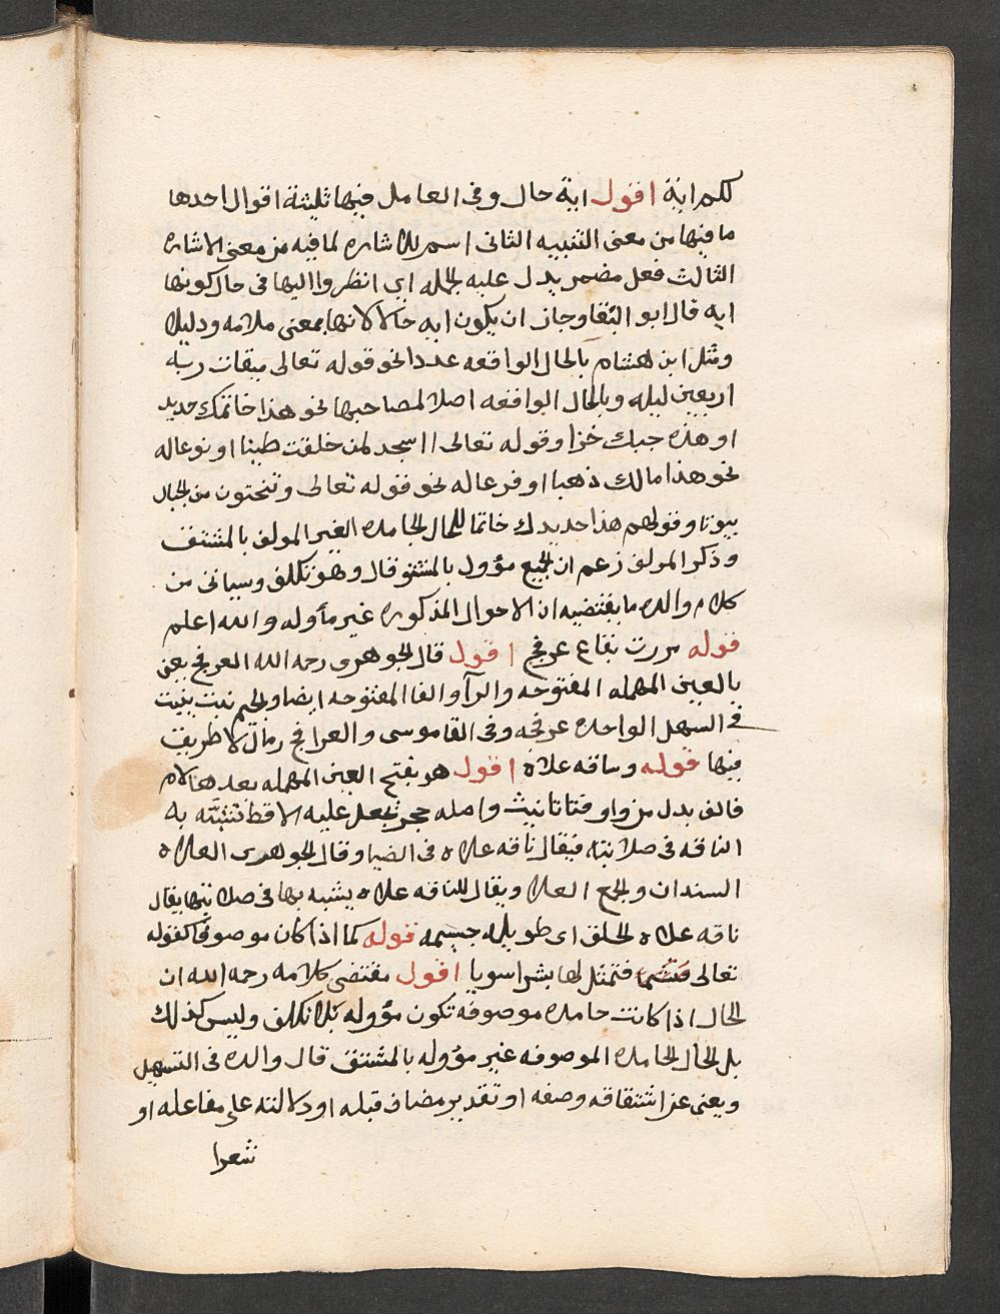 لكم اية اقول اية حال وفى العامل فيها ثلثة اقوال احدها
ما فيها من معنى التنبيه الثانى اسم الاشاره لما فيه من معنى الاشاره
الثالث فعل مضمر يدل عليه الجمله اى انظروا اليها فى حال كونها
ايه قال ابو البقا وجاز ان يكون ايه حالا لانها بمعنى علامه ودليلا
ومثل ابن هشام بالحال الواقعه عددا نحو قوله تعالى ميقات ربه
اربعين ليله وبالحال الواقعه اصلا لصاحبها نحو هذا خاتمك حديد
او هذه جبتك خزا وقوله تعالى ااسجد لمن خلقت طينا او نوعا له
نحو هذا مالك ذهبا او فرعا له نحو قوله تعالى وتنحتون من الجبال
بيوتا وقولهم هذا حديدك خاتما للحال الجامده الغير المولف بالمشتق
وذكر المولف زعم ان الجميع مؤول بالمشتق قال وهو تكلف وسياتى من
كلام والده ما يقتضيه ان الاحوال المذكوره غير مأوله والله اعلم
قوله مررت بقاع عرفج اقول قال الجوهرى رحمه الله العرفج يعنى
بالعين المهمله المفتوحه والرآ والفا المفتوحه ايضا وبالجيم نبت ينبت
فى السهل الواحده عرفجه وفى القاموس والعرافج رمال لا طريق
فيها قوله وناقه علاة اقول هو بفتح العين المهمله بعدها لام
فالف بدل من واو فتا تانيث واصله حجر يجعل عليه الاقط تشبه به
الناقه فى صلابته فيقال ناقه علاه فى الضيا وقال الجوهرى العلاه
السندان والجمع العلا ويقال للناقه علاه يشبه بها فى صلابتها يقال
ناقه علاه الخلق اى طويله جسيمه قوله كما اذا كان موصوفا كقوله
تعالى فتمثل لها بشرا سويا اقول مقتضى كلامه رحمه الله ان
الحال اذا كانت جامده موصوفه تكون مؤوله بلا تكلف وليس كذلك
بل الحال الجامده الموصوفه غير مؤوله بالمشتق قال والده فى التسهيل
ويغنى عن اشتقاقه وصفه او تقدير مضاف قبله او دلالته على مفاعله او
شعرا